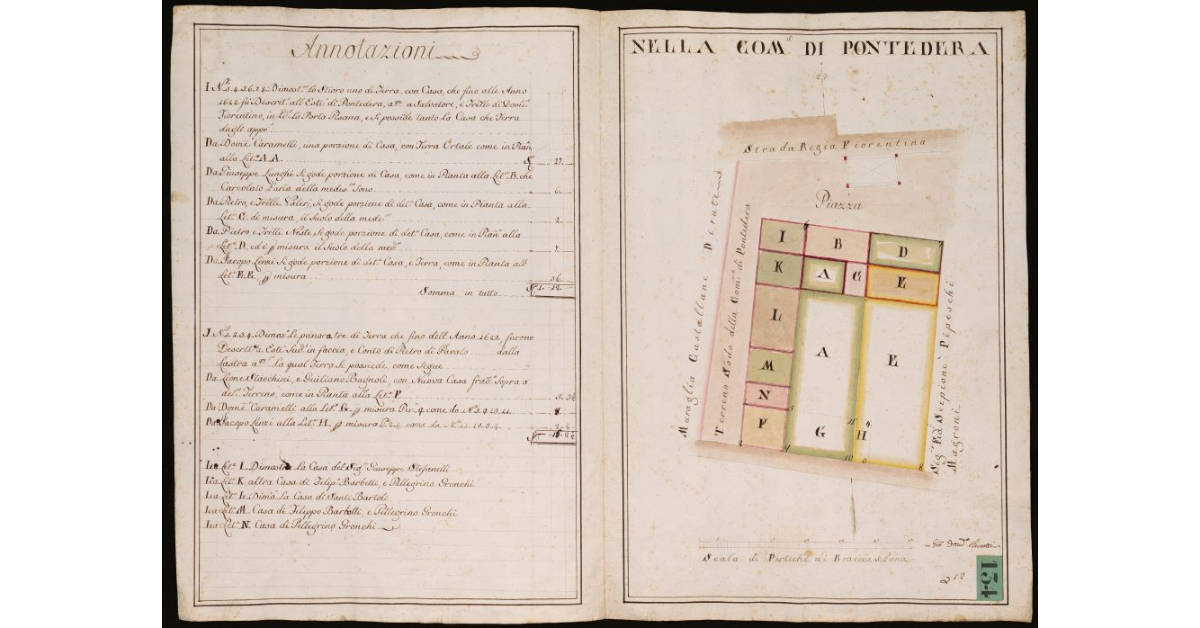 Annotazioni
I N.i 3. 4. 26. 14. Dimost.o Lo Stioro uno di Terra, con Casa, che fino alle Anno
1622 fù Descrit.a all' Esti.o di Pontedera, a.tte a Salvatore, e Frēlli di Domi.
Fiorentino, in La Porta Pisana, e si possiede tanto La Casa che Terra
dagli appo.
Da Dom.e Caramelli, una porzione di Casa, con Terra Ortale come in Pian.
alla Let.a A.A.
Da Giuseppe Lunghi Si gode porzione di Casa, come in Pianta alla Let.a B. che
Carcolato Laria della medes.a Sono
Da Pietro, e Frēlle Valeri, Si gode porzione di det.a Casa, come in Pianta alla
Let.a C. di misura, il Suolo della mede.
Da Pietro, e Frēlle Neste Si gode porzione di det.a Casa, come in Pian.a alla
Let.a D, ed è p misura il Suolo della med.
Da Jacopo Lenzi Si gode porzione di det.a Casa, e Terra, come in Pianta all
Let.a E.E. p misura
Somma in tutto
J N.i 1. 2. 3. 4. Dimos.o Le panora tre di Terra che fino dell' Anno 1622 furono
Descrit.e a Esti. in faccia, e Conto di Pietro di Pavolo dalla
Lastra a.tte La qual Terra Si possiede, come Segue
Da Leone Stacchini, e Guiliano Bagnoli, con Nuova Casa fratt.a Sopra a
det.o Terreno, come in Pianta alla Let.a F.
Da Dom.e Caramelli alla Let.a G. p misura
Da Jacopo Lenzi alla Let.a H. p misura
La Let.a I. Dimostra La Casa del Sig.e Giuseppe Stefanelli
La Let.a K altra Casa di Filip.o Barbetti, e Pellegrino Gronchi
La Let.a L. Dimo.a La Casa di Santi Bartoli
La Let.a M. Casa di Filippo Barbetti e Pellegrino Gronchi
La Let.a N. Casa di Pellegrino Gronchi
NELLA COM.tà DI PONTEDERA
Strada Regia Fiorentina
Piazza
Muraglia Castellane Dirutine
Terreno Sodo della Com.tà di Pontedera
I
B
D
K
A
C
E
L
A
E
M
N
F
G
H
Sig.e Ed. Scipione Pipeschi
Magroni
Scala di Pertiche di Braccia 5 l'una
134